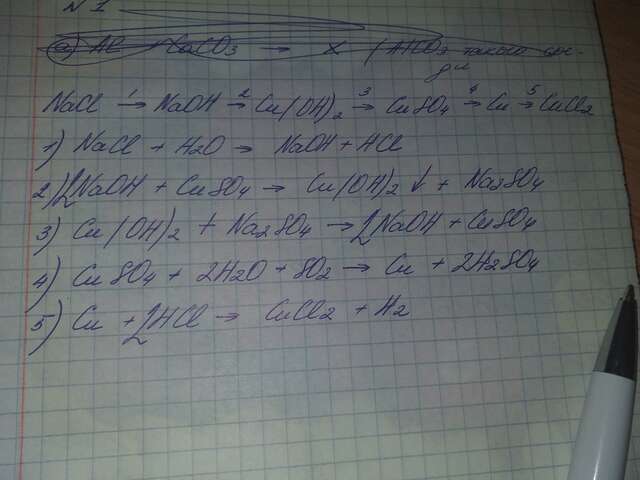 N 1
а) CaCO3 → X
NaCl →1 NaOH →2 Cu(OH)2 →3 CuSO4 →4 Cu →5 CuCl2
1) NaCl + H2O → NaOH + HCl
2) 2NaOH + CuSO4 → Cu(OH)2 ↓ + Na2SO4
3) Cu(OH)2 + Na2SO4 → 2NaOH + CuSO4
4) CuSO4 + 2H2O + SO2 → Cu + 2H2SO4
5) Cu + 2HCl → CuCl2 + H2